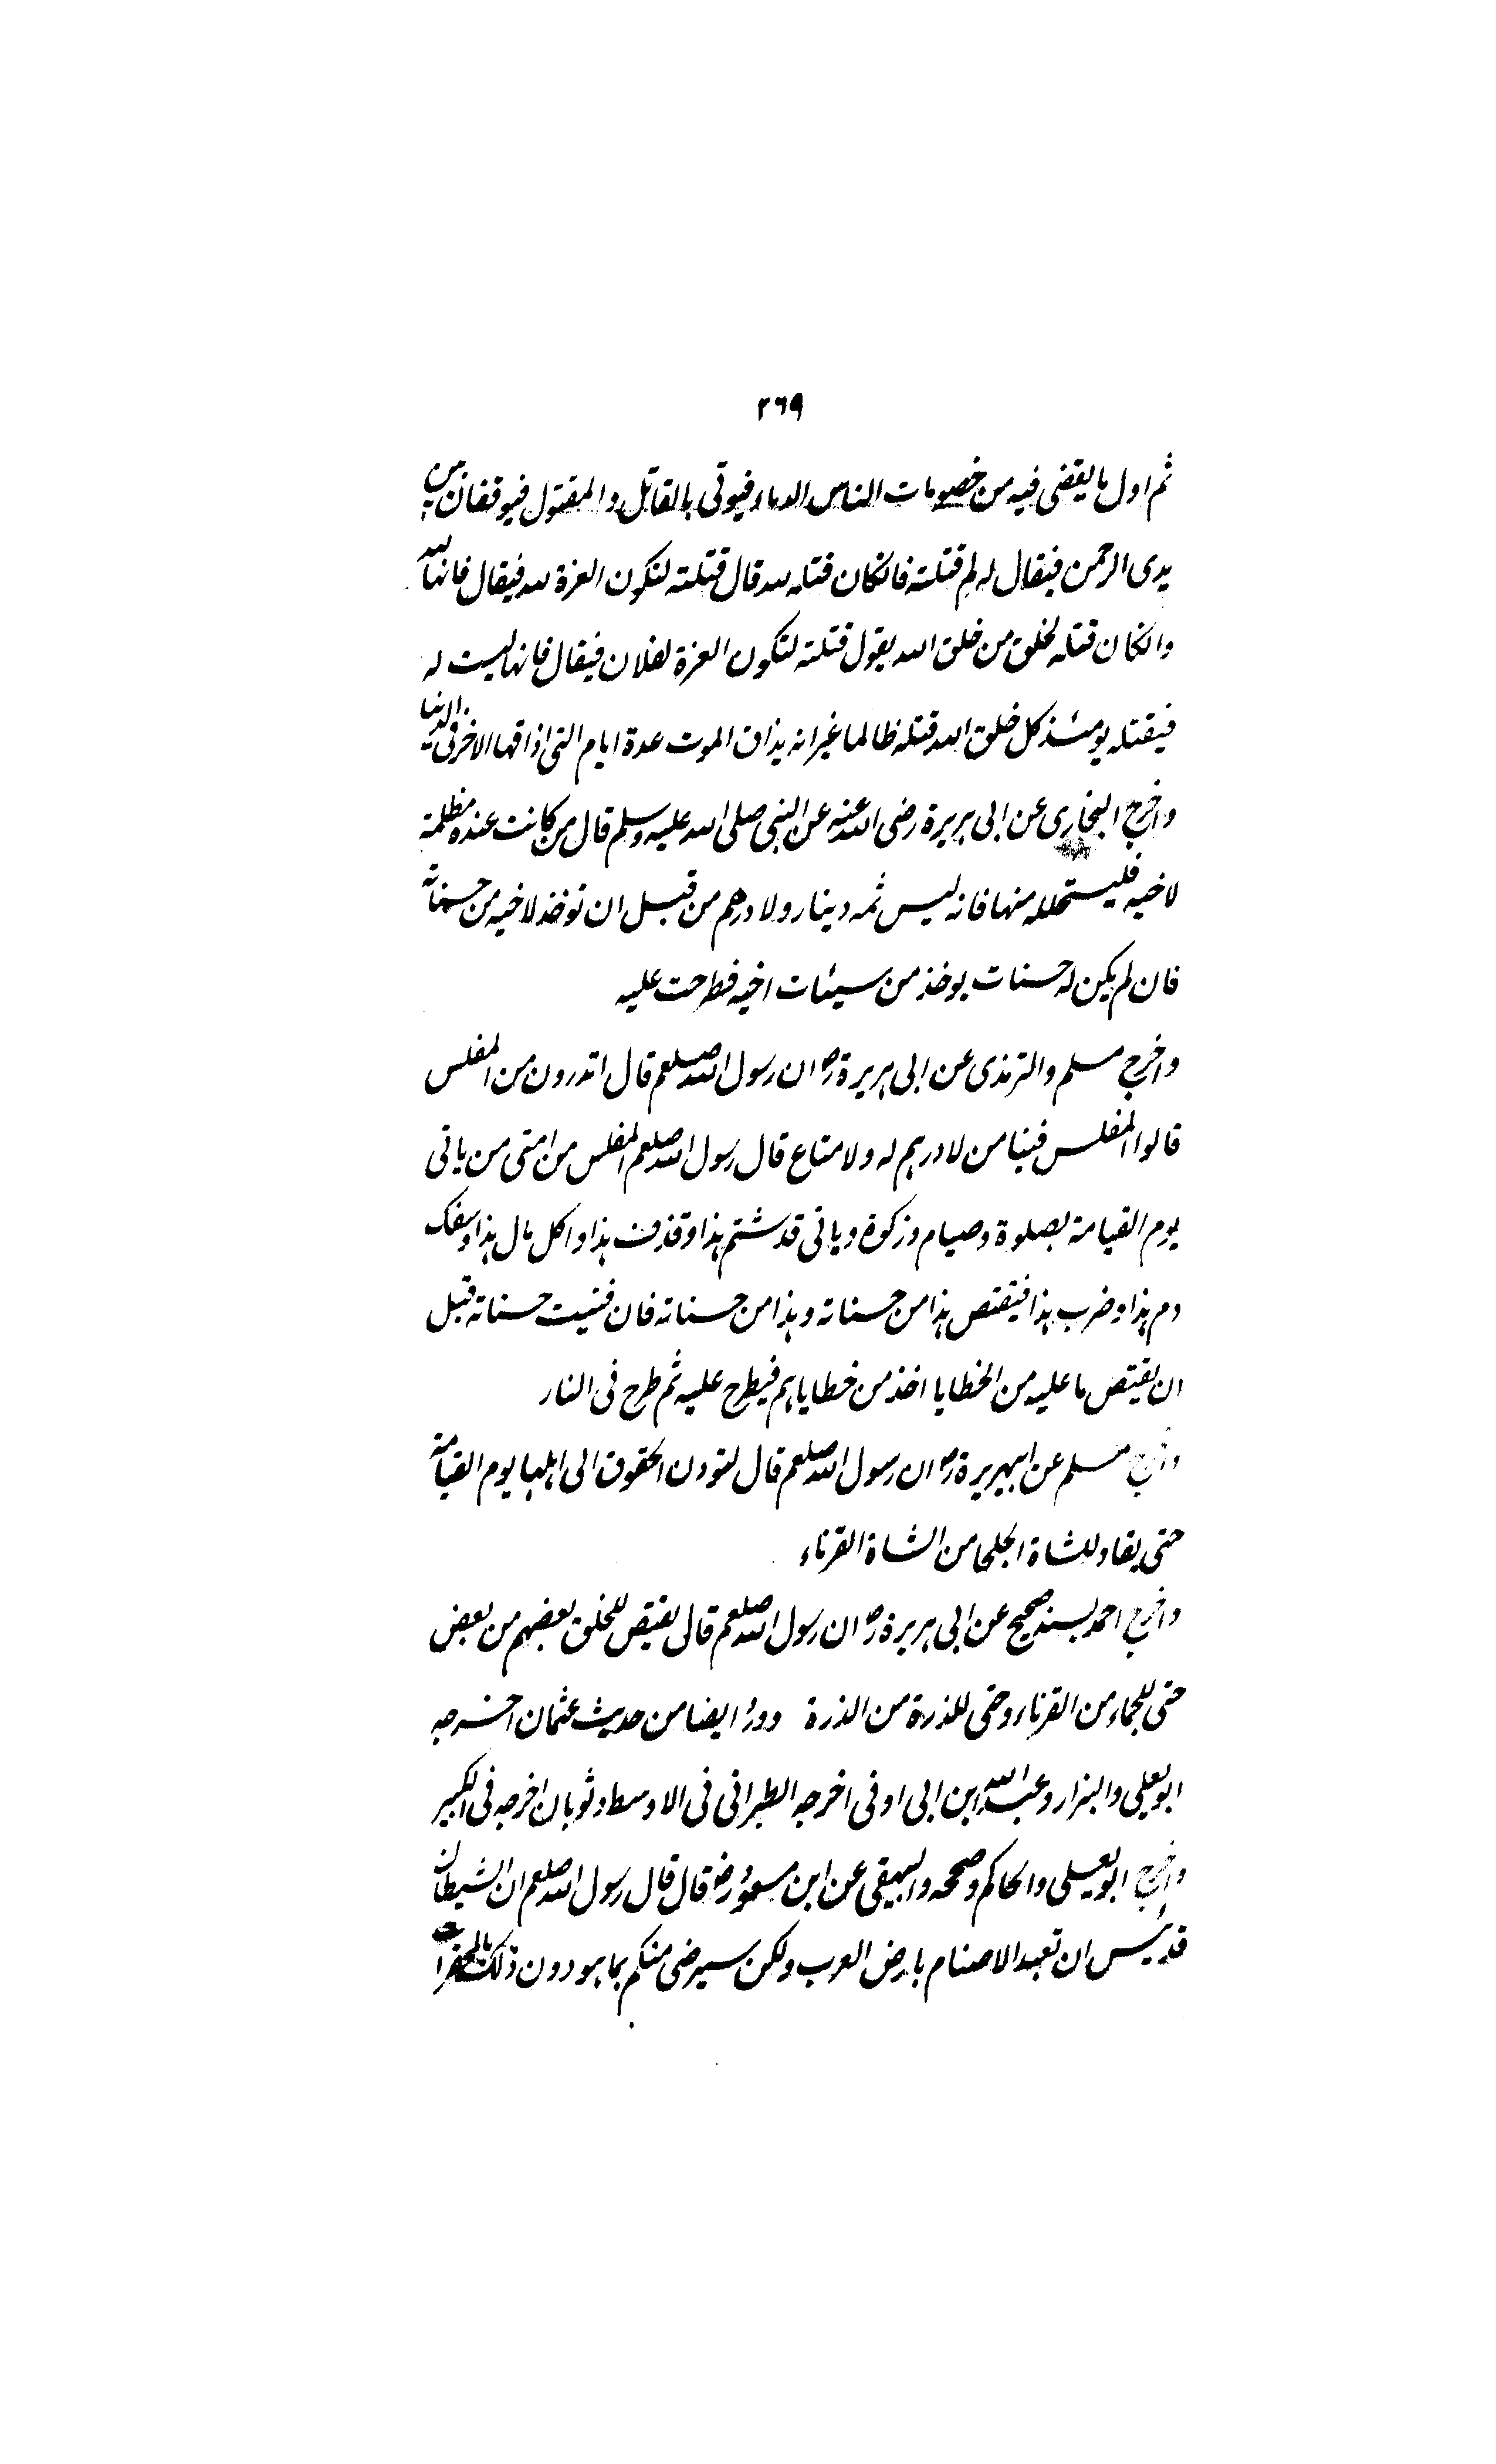 ٢٦٩
ثم اول ما يقضى فيه من خصومات الناس الدماء فيوتى بالقاتل والمقتول فيوقفان بين
يدى الرحمن فيقال له لم قتلته فانكان قتله لله قال قتلته لتكون العزة لله فيقال فانها لله
وانكان قتله لخلق من خلق الله يقول قتلته لتكون العزة لفلان فيقال فانها ليست له
فيقتله يومئذ كل خلق الله قتله ظالما غير انه يذاق الموت عدة ايام التى اذاقها الاخر فى الدنيا
واخرج البخارى عن ابى هريرة رضى الله عنه عن النبى صلى الله عليه وسلم قال من كانت عنده مظلمة
لاخيه فليستحلله منها فانه ليس ثمه دينار ولا درهم من قبل ان توخذ لاخيه من حسناته
فان لم يكن له حسنات يوخذ من سيئات اخيه فطرحت عليه
واخرج مسلم والترمذى عن ابى هريرة رض ان رسول الله صلعم قال اتدرون من المفلس
قالوا المفلس فينا من لا درهم له ولا متاع قال رسول الله صلعم المفلس من امتى من ياتى
يوم القيامة بصلوة وصيام وزكوة وياتى قد شتم هذا وقذف هذا واكل مال هذا وسفك
دم هذا وضرب هذا فيقتص هذا من حسناته وهذا من حسناته فان فنيت حسناته قبل
ان يقتص ما عليه من الخطايا اخذ من خطاياهم فيطرح عليه ثم طرح فى النار
واخرج مسلم عن ابيهريرة رض ان رسول الله صلعم قال لتودن الحقوق الى اهلها يوم القيامة
حتى يقاد للشاة الجلحا من الشاة القرناء
واخرج احمد بسند صحيح عن ابى هريرة رض ان رسول الله صلعم قال يقتص للخلق بعضهم من بعض
حتى للجماء من القرناء وحتى للذرة من الذرة وورد ايضا من حديث عثمان اخرجه
ابو يعلى والبزار وعبد الله ابن ابى اوفى اخرجه الطبرانى فى الاوسط وثوبان اخرجه فى الكبير
واخرج ابو يعلى والحاكم وصححه والبيهقى عن ابن مسعود رض قال قال رسول الله صلعم ان الشيطان
قد يئس ان تعبد الاصنام بارض العرب ولكن سيرضى منكم بما هو دون ذلك بالمحقرات